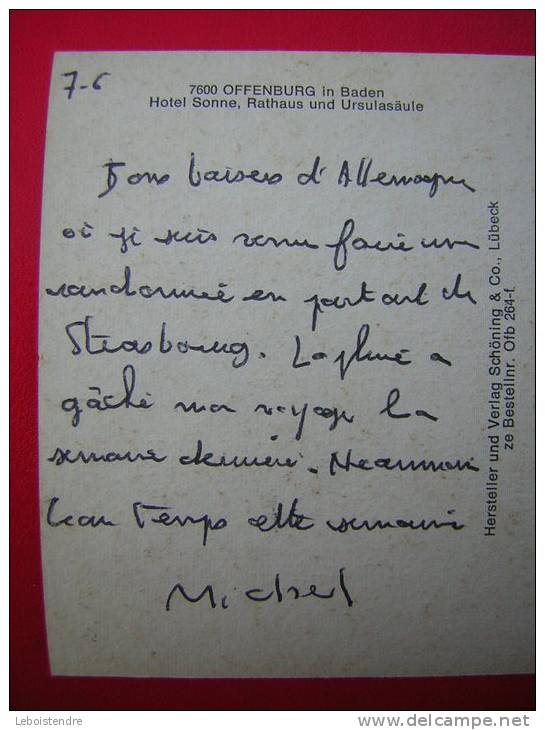 7-6
7600 OFFENBURG in Baden
Hotel Sonne, Rathaus und Ursulasäule
Bons baisers d'Allemagne
où je suis venu faire une
randonnée en partant de
Strasbourg. La pluie a
gâché mon voyage la
semaine dernière. Néanmoins
beau temps cette semaine
Michel
Hersteller und Verlag Schöning & Co., Lübeck
ze Bestellnr. Ofb 264-f.
Leboistendre
www.delcampe.net